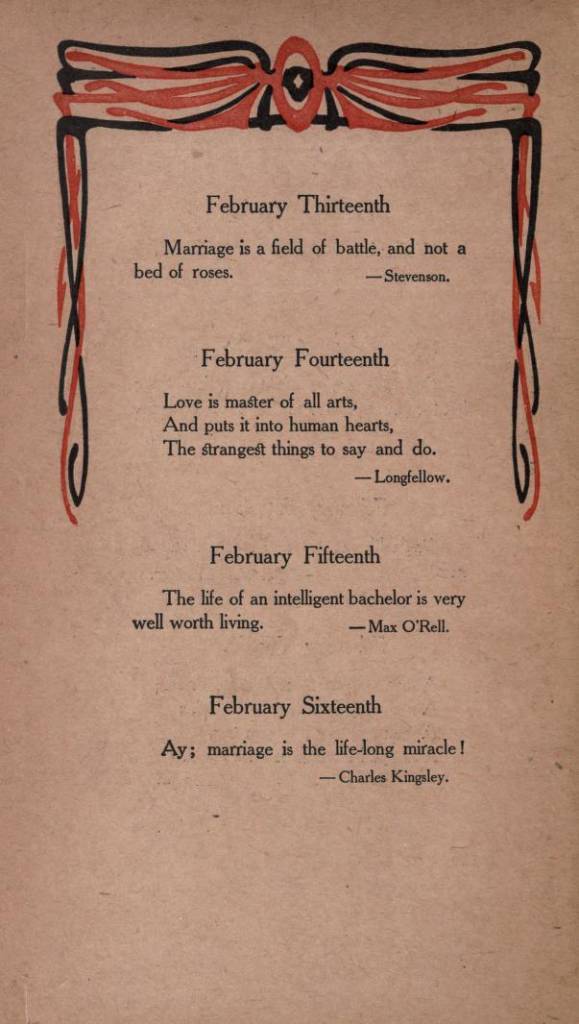 February Thirteenth
Marriage is a field of battle, and not a
bed of roses. —Stevenson.
February Fourteenth
Love is master of all arts,
And puts it into human hearts,
The strangest things to say and do.
—Longfellow.
February Fifteenth
The life of an intelligent bachelor is very
well worth living. —Max O'Rell.
February Sixteenth
Ay; marriage is the life-long miracle!
—Charles Kingsley.